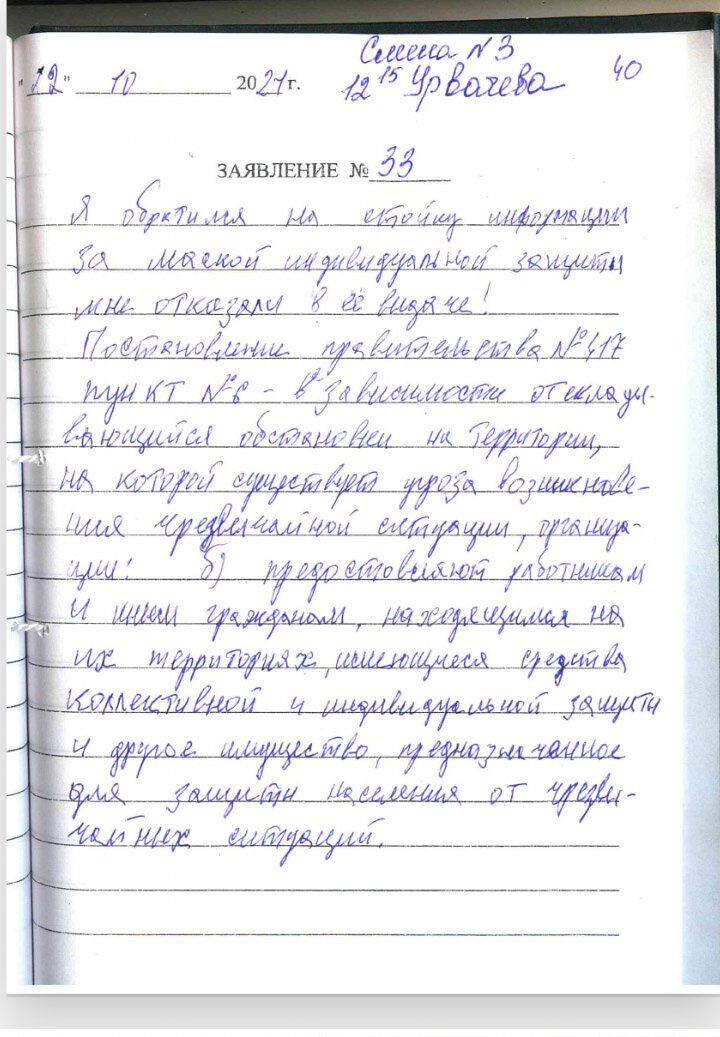 Смена N 3
40
"22" 10 2021 г. 12 15 Урвачева
ЗАЯВЛЕНИЕ № 33
Я обратился на стойку информации
за маской индивидуальной защиты
мне отказали в её выдаче!
Постановление правительства № 417
пункт № 6 - в зависимости от склады-
вающийся обстановки на территории,
на которой существует угроза возникнове-
ния чрезвычайной ситуации, организа-
ции: б) предоставляют работникам
и иным гражданам, находящимся на
их территориях, имеющиеся средства
коллективной и индивидуальной защиты
и другое имущество, предназначенное
для защиты населения от чрезвы-
чайных ситуаций.